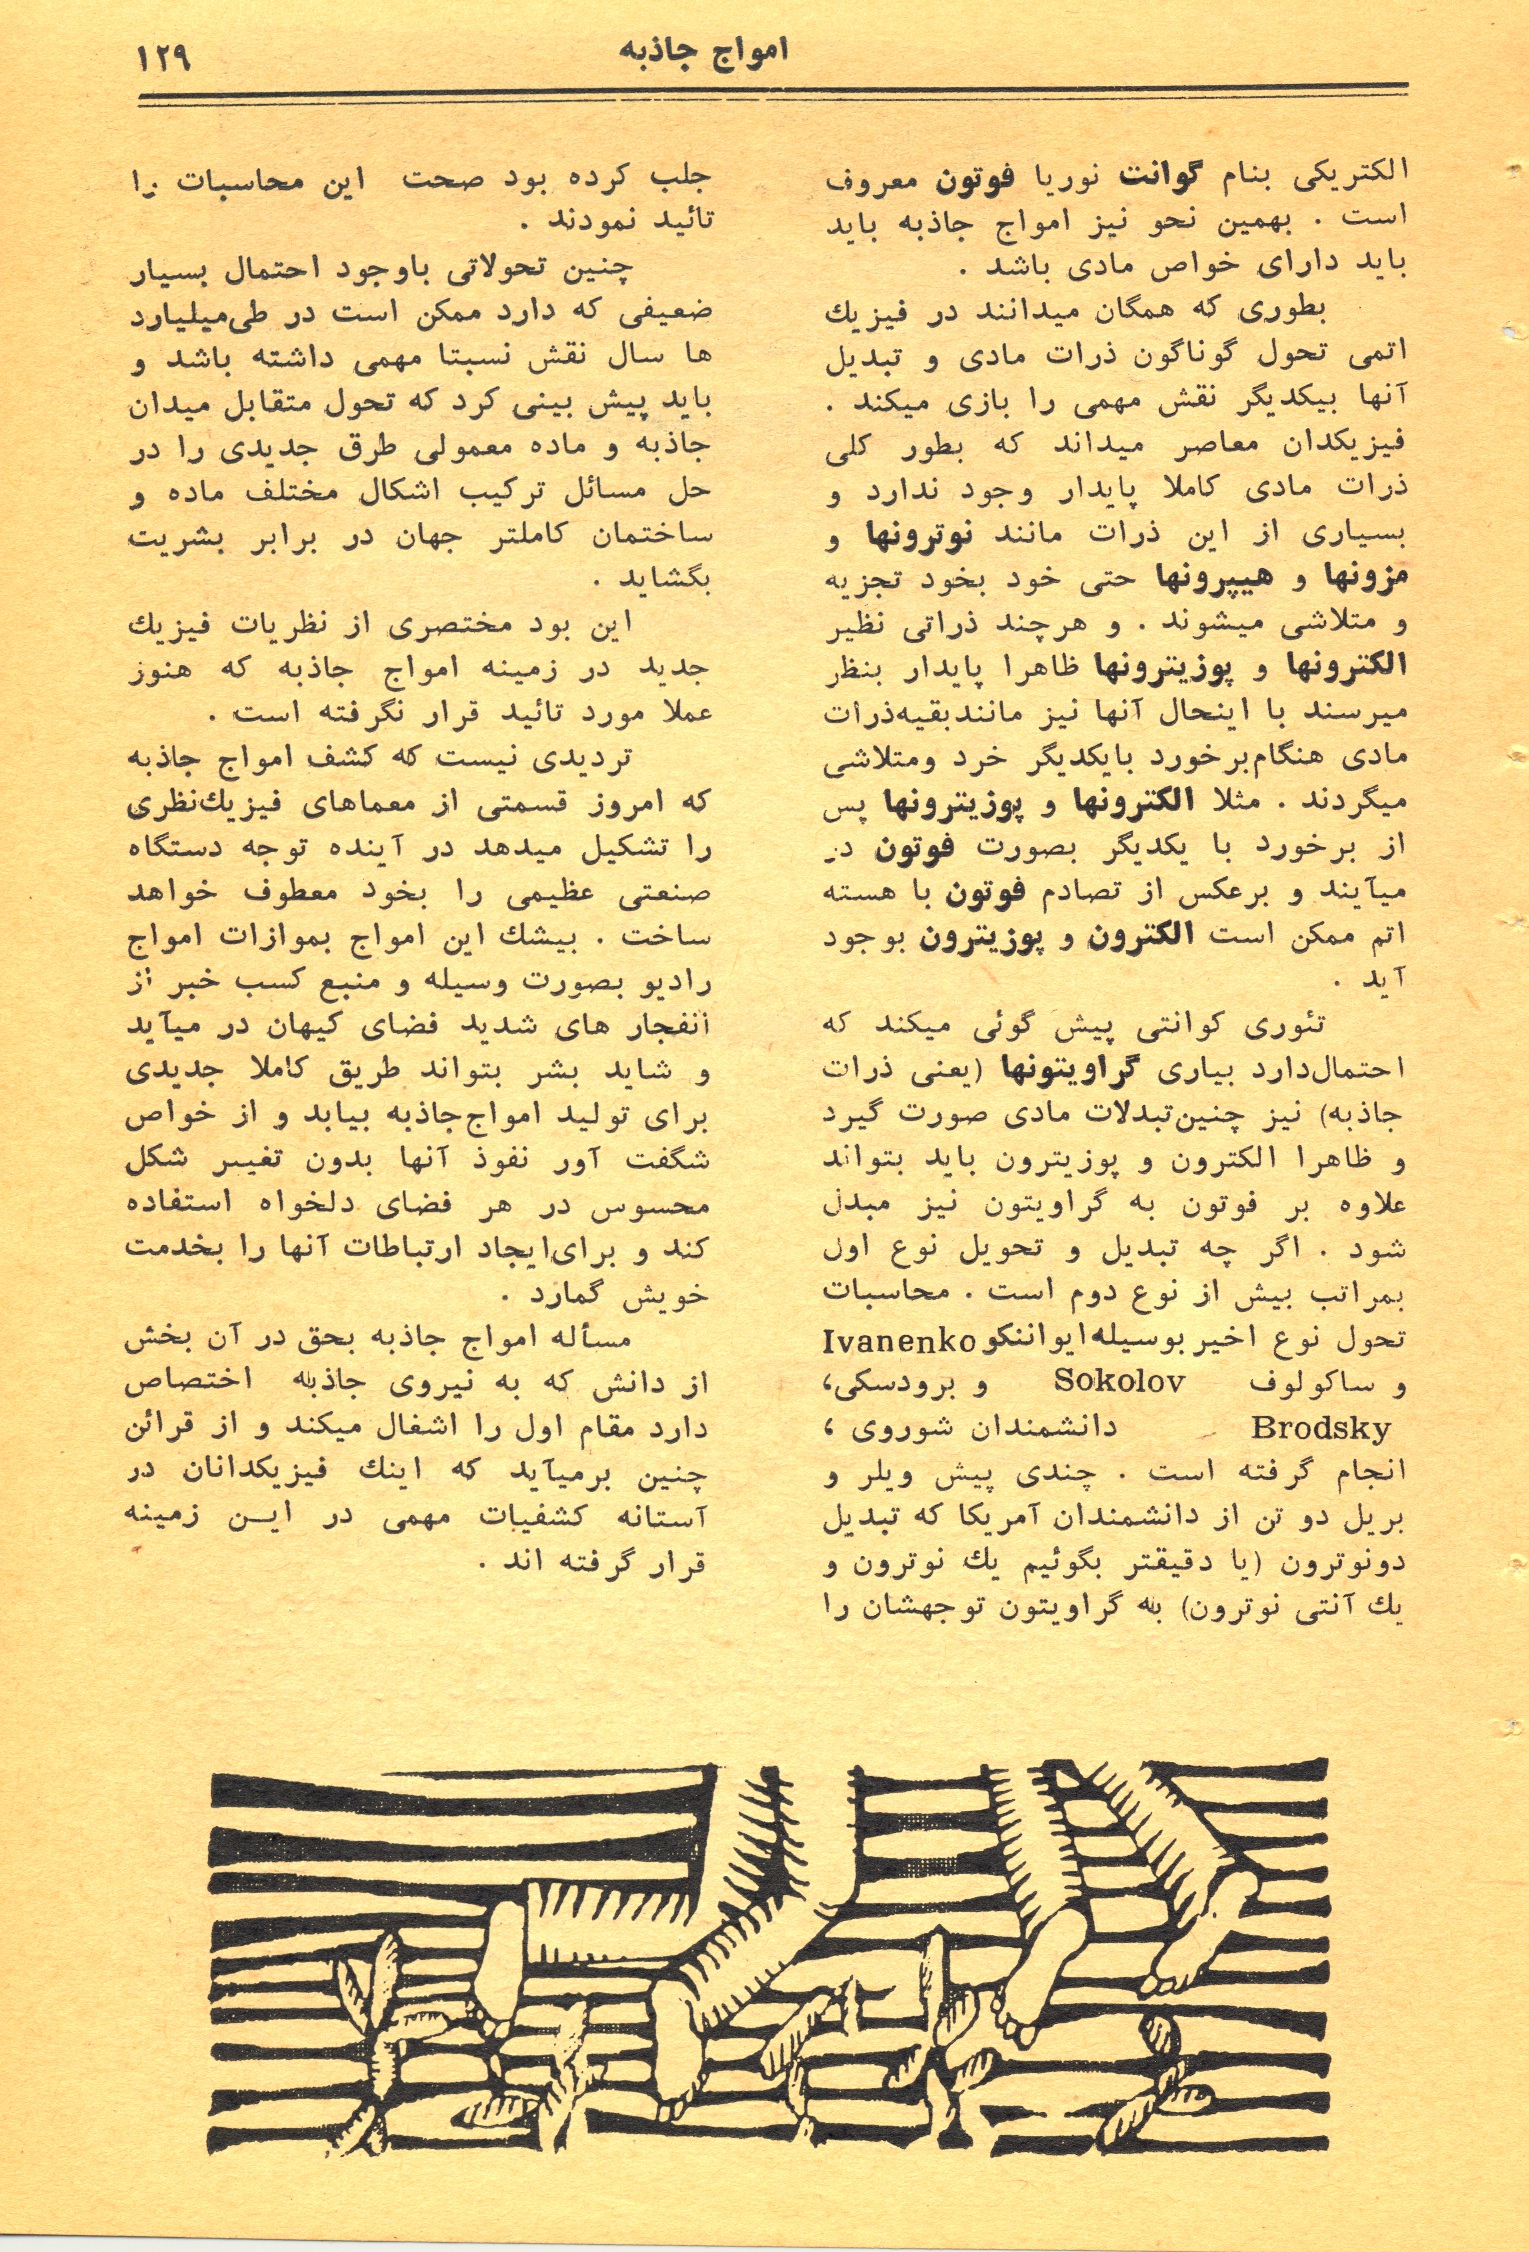 امواج جاذبه
۱۲۹
الکتریکی بنام گوانت نوریا فوتون معروف
است . بهمین نحو نیز امواج جاذبه باید
باید دارای خواص مادی باشد .
بطوری که همگان میدانند در فیزیك
اتمی تحول گوناگون ذرات مادی و تبدیل
آنها بیکدیگر نقش مهمی را بازی میکند .
فیزیکدان معاصر میداند که بطور کلی
ذرات مادی کاملا پایدار وجود ندارد و
بسیاری از این ذرات مانند نوترونها و
مزونها و هیپرونها حتی خود بخود تجزیه
و متلاشی میشوند . و هرچند ذراتی نظیر
الکترونها و پوزیترونها ظاهرا پایدار بنظر
میرسند با اینحال آنها نیز مانند بقیه ذرات
مادی هنگام برخورد بایکدیگر خرد ومتلاشی
میگردند . مثلا الکترونها و پوزیترونها پس
از برخورد با یکدیگر بصورت فوتون در
میآیند و برعکس از تصادم فوتون با هسته
اتم ممکن است الکترون و پوزیترون بوجود
آید .
تئوری کوانتی پیش گوئی میکند که
احتمال دارد بیاری گراویتونها (یعنی ذرات
جاذبه) نیز چنین تبدلات مادی صورت گیرد
و ظاهرا الکترون و پوزیترون باید بتواند
علاوه بر فوتون به گراویتون نیز مبدل
شود . اگر چه تبدیل و تحویل نوع اول
بمراتب بیش از نوع دوم است . محاسبات
تحول نوع اخیر بوسیله ایواننکو Ivanenko
و ساکولوف Sokolov و برودسکی،
Brodsky دانشمندان شوروی ،
انجام گرفته است . چندی پیش ویلر و
بریل دو تن از دانشمندان آمریکا که تبدیل
دونوترون (یا دقیقتر بگوئیم یك نوترون و
یك آنتی نوترون) به گراویتون توجهشان را
جلب کرده بود صحت این محاسبات را
تائید نمودند .
چنین تحولاتی باوجود احتمال بسیار
ضعیفی که دارد ممکن است در طی میلیارد
ها سال نقش نسبتا مهمی داشته باشد و
باید پیش بینی کرد که تحول متقابل میدان
جاذبه و ماده معمولی طرق جدیدی را در
حل مسائل ترکیب اشکال مختلف ماده و
ساختمان کاملتر جهان در برابر بشریت
بگشاید .
این بود مختصری از نظریات فیزیك
جدید در زمینه امواج جاذبه که هنوز
عملا مورد تائید قرار نگرفته است .
تردیدی نیست که کشف امواج جاذبه
که امروز قسمتی از معماهای فیزیك نظری
را تشکیل میدهد در آینده توجه دستگاه
صنعتی عظیمی را بخود معطوف خواهد
ساخت . بیشك این امواج بموازات امواج
رادیو بصورت وسیله و منبع کسب خبر از
انفجار های شدید فضای کیهان در میآید
و شاید بشر بتواند طریق کاملا جدیدی
برای تولید امواج جاذبه بیابد و از خواص
شگفت آور نفوذ آنها بدون تغییر شکل
محسوس در هر فضای دلخواه استفاده
کند و برای ایجاد ارتباطات آنها را بخدمت
خویش گمارد .
مسأله امواج جاذبه بحق در آن بخش
از دانش که به نیروی جاذبه اختصاص
دارد مقام اول را اشغال میکند و از قرائن
چنین برمیآید که اینك فیزیکدانان در
آستانه کشفیات مهمی در ایـن زمینه
قرار گرفته اند .